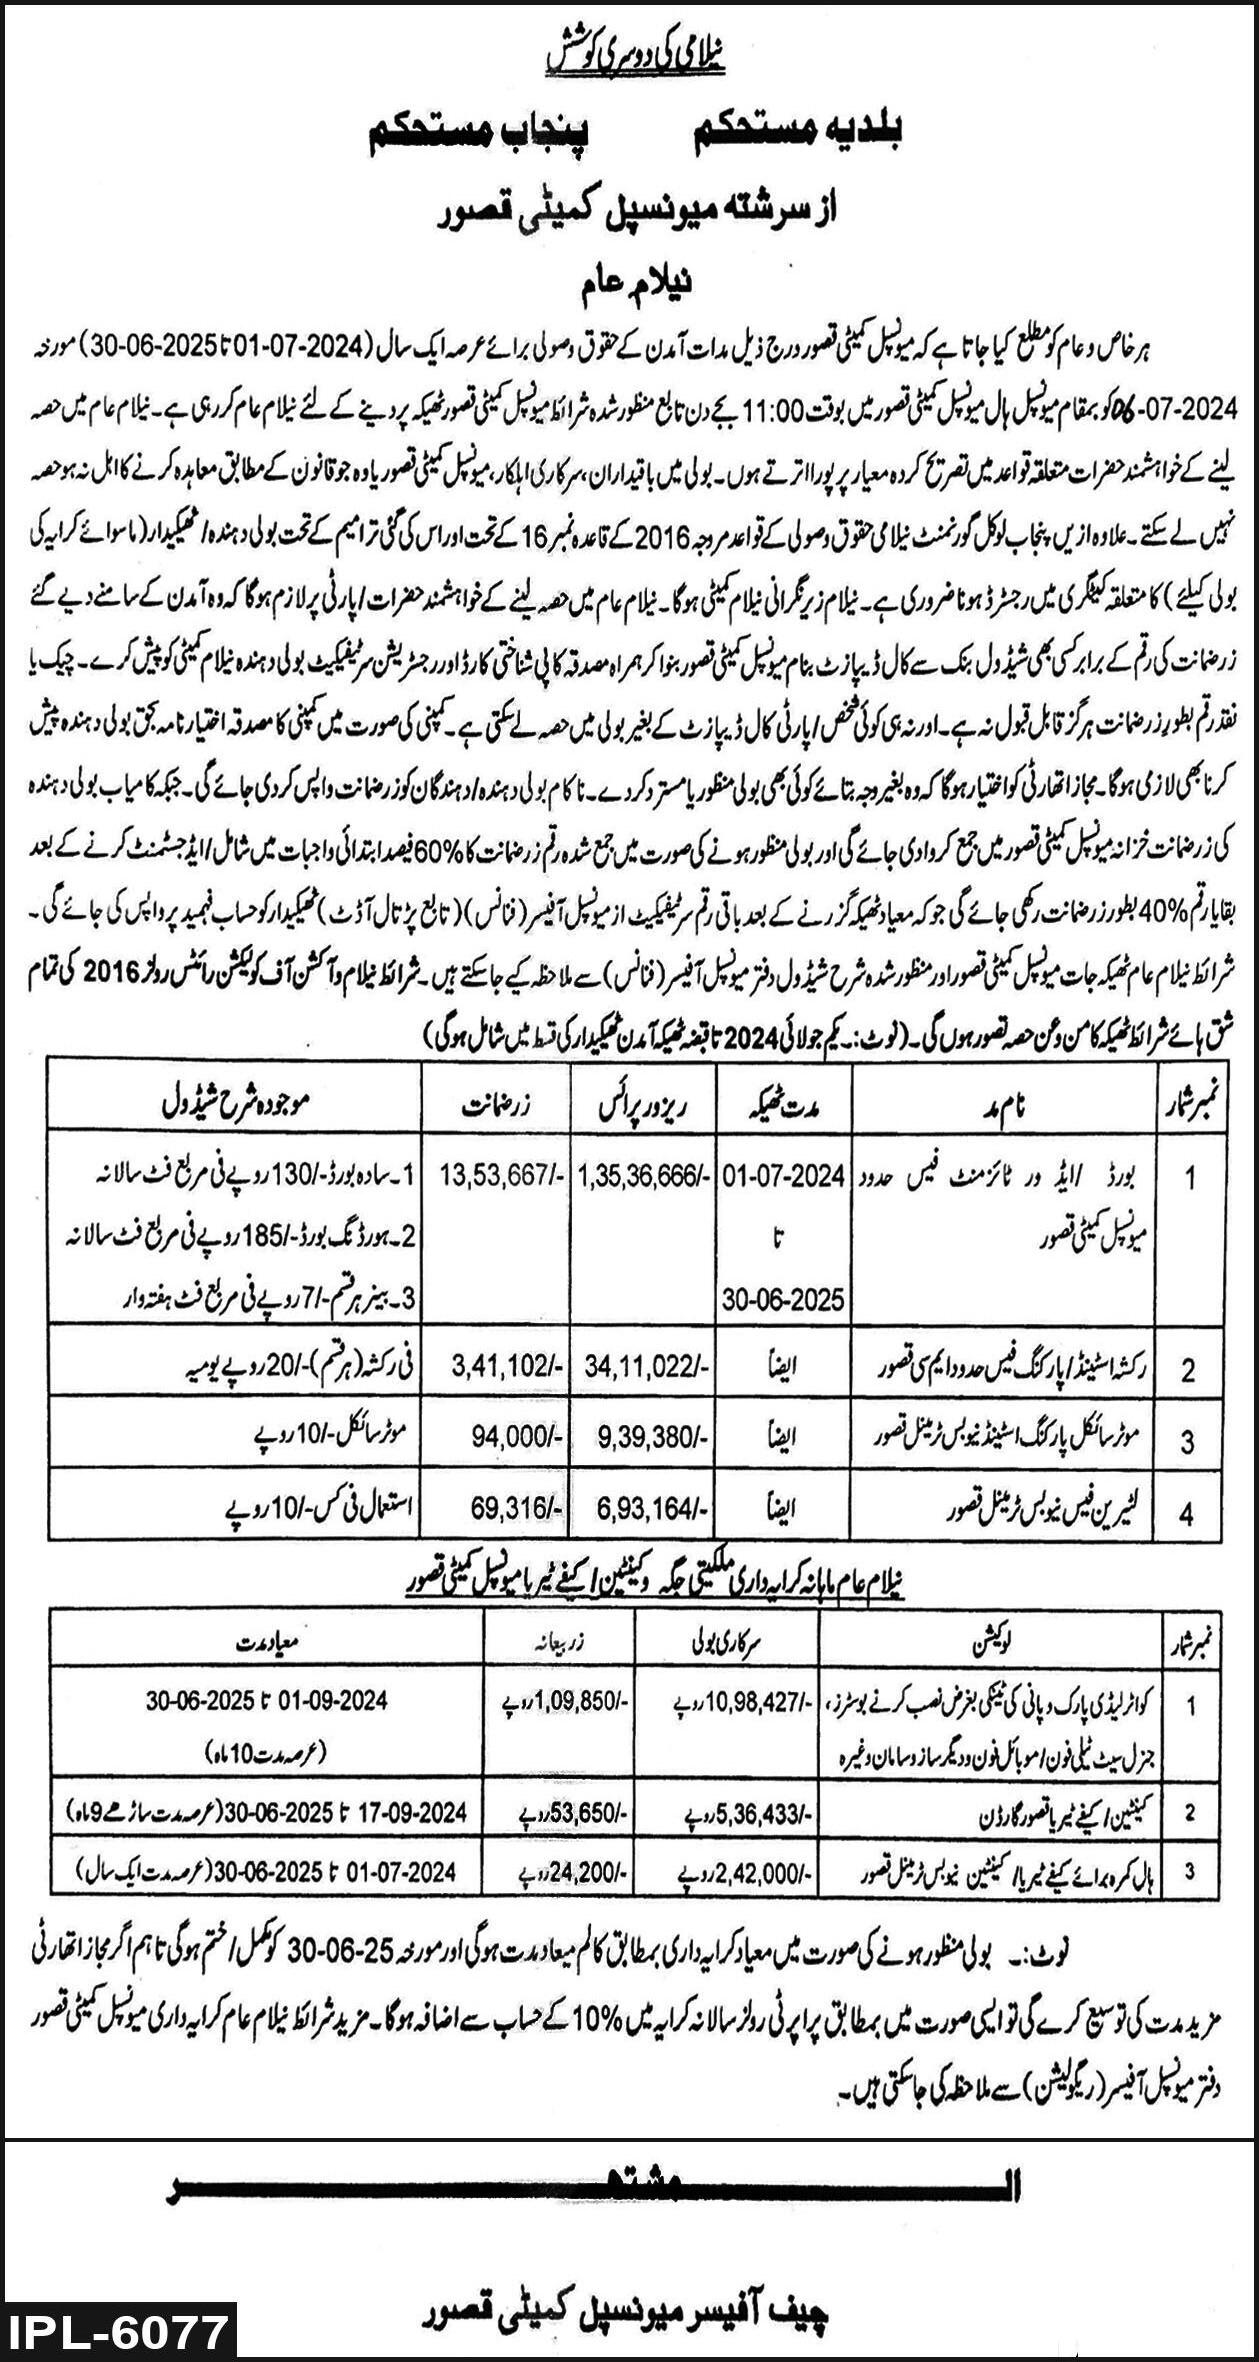 نیلامی کی دوسری کوشش
بلدیہ مستحکم پنجاب مستحکم
از سرشتہ میونسپل کمیٹی قصور
نیلام عام
ہر خاص و عام کو مطلع کیا جاتا ہے کہ میونسپل کمیٹی قصور درج ذیل مدات آمدن کے حقوق وصولی برائے عرصہ ایک سال (01-07-2024 تا 30-06-2025) مورخہ
06-07-2024 کو بمقام میونسپل ہال میونسپل کمیٹی قصور میں بوقت 11:00 بجے دن تابع منظور شدہ شرائط میونسپل کمیٹی قصور ٹھیکہ پر دینے کے لئے نیلام عام کر رہی ہے۔ نیلام عام میں حصہ
لینے کے خواہشمند حضرات متعلقہ قواعد میں تصریح کردہ معیار پر پورا اترتے ہوں۔ بولی میں باقیداران، سرکاری اہلکار، میونسپل کمیٹی قصور یا وہ جو قانون کے مطابق معاہدہ کرنے کا اہل نہ ہو حصہ
نہیں لے سکتے۔ علاوہ ازیں پنجاب لوکل گورنمنٹ نیلامی حقوق وصولی کے قواعد مروجہ 2016 کے قاعدہ نمبر 16 کے تحت اور اس کی گئی ترامیم کے تحت بولی دہندہ/ٹھیکیدار (ماسوائے کرایہ کی
بولی کیلئے) کا متعلقہ کیٹگری میں رجسٹرڈ ہونا ضروری ہے۔ نیلام زیر نگرانی نیلام کمیٹی ہوگا۔ نیلام عام میں حصہ لینے کے خواہشمند حضرات/پارٹی پر لازم ہوگا کہ وہ آمدن کے سامنے دیے گئے
زر ضمانت کی رقم کے برابر کسی بھی شیڈول بنک سے کال ڈیپازٹ بنام میونسپل کمیٹی قصور بنوا کر ہمراہ مصدقہ کاپی شناختی کارڈ اور رجسٹریشن سرٹیفیکیٹ بولی دہندہ نیلام کمیٹی کو پیش کرے۔ چیک یا
نقد رقم بطور زر ضمانت ہرگز قابل قبول نہ ہے۔ اور نہ ہی کوئی شخص/پارٹی کال ڈیپازٹ کے بغیر بولی میں حصہ لے سکتی ہے۔ کمپنی کی صورت میں کمپنی کا مصدقہ اختیار نامہ بحق بولی دہندہ پیش
کرنا بھی لازمی ہوگا۔ مجاز اتھارٹی کو اختیار ہوگا کہ وہ بغیر وجہ بتائے کوئی بھی بولی منظور یا مسترد کر دے۔ ناکام بولی دہندہ/دہندگان کو زر ضمانت واپس کر دی جائے گی۔ جبکہ کامیاب بولی دہندہ
کی زر ضمانت خزانہ میونسپل کمیٹی قصور میں جمع کروا دی جائے گی اور بولی منظور ہونے کی صورت میں جمع شدہ رقم زر ضمانت کا 60% فیصد ابتدائی واجبات میں شامل/ایڈجسٹمنٹ کرنے کے بعد
بقایا رقم 40% بطور زر ضمانت رکھی جائے گی جو کہ معیاد ٹھیکہ گزرنے کے بعد باقی رقم سرٹیفکیٹ از میونسپل آفیسر (فنانس) (تابع پڑتال آڈٹ) ٹھیکیدار کو حساب فہمید پر واپس کی جائے گی۔
شرائط نیلام عام ٹھیکہ جات میونسپل کمیٹی قصور اور منظور شدہ شرح شیڈول دفتر میونسپل آفیسر (فنانس) سے ملاحظہ کیے جا سکتے ہیں۔ شرائط نیلام و آکشن آف کولیکشن رائٹس رولز 2016 کی تمام
شق ہائے شرائط ٹھیکہ کا من و عن حصہ تصور ہوں گی۔ (نوٹ:۔ یکم جولائی 2024 تا قبضہ ٹھیکہ آمدن ٹھیکیدار کی قسط میں شامل ہوگی)
نمبر شمار نام مد مدت ٹھیکہ ریزور پرائس زر ضمانت موجودہ شرح شیڈول
1 بورڈ /ایڈ ور ٹائزمنٹ فیس حدود 01-07-2024 1,35,36,666/- 13,53,667/- 1۔ سادہ بورڈ -/130 روپے فی مربع فٹ سالانہ
میونسپل کمیٹی قصور تا 2۔ ہورڈنگ بورڈ -/185 روپے فی مربع فٹ سالانہ
30-06-2025 3۔ بینر ہر قسم -/7 روپے فی مربع فٹ ہفتہ وار
2 رکشہ اسٹینڈ/پارکنگ فیس حدود ایم سی قصور ایضاً 34,11,022/- 3,41,102/- فی رکشہ (ہر قسم) -/20 روپے یومیہ
3 موٹر سائیکل پارکنگ اسٹینڈ نیو بس ٹرمینل قصور ایضاً 9,39,380/- 94,000/- موٹر سائیکل -/10 روپے
4 لٹیرین فیس نیو بس ٹرمینل قصور ایضاً 6,93,164/- 69,316/- استعمال فی کس -/10 روپے
نیلام عام ماہانہ کرایہ داری ملکیتی جگہ و کینٹین/کیفے ٹیریا میونسپل کمیٹی قصور
نمبر شمار لوکیشن سرکاری بولی زر بیعانہ معیاد مدت
1 کواٹر لیڈی پارک و پانی کی ٹینکی بغرض نصب کرنے بوسٹرز، 10,98,427/- روپے 1,09,850/- روپے 01-09-2024 تا 30-06-2025
جنرل سیٹ ٹیلی فون/موبائل فون و دیگر ساز و سامان وغیرہ (عرصہ مدت 10 ماہ)
2 کینٹین/کیفے ٹیریا قصور گارڈن 5,36,433/- روپے 53,650/- روپے 17-09-2024 تا 30-06-2025 (عرصہ مدت ساڑھے 9 ماہ)
3 ہال کمرہ برائے کیفے ٹیریا/کینٹین نیو بس ٹرمینل قصور 2,42,000/- روپے 24,200/- روپے 01-07-2024 تا 30-06-2025 (عرصہ مدت ایک سال)
نوٹ:۔ بولی منظور ہونے کی صورت میں معیاد کرایہ داری بمطابق کالم میعاد مدت ہوگی اور مورخہ 30-06-25 کو مکمل/ختم ہوگی تاہم اگر مجاز اتھارٹی
مزید مدت کی توسیع کرے گی تو ایسی صورت میں بمطابق پراپرٹی رولز سالانہ کرایہ میں 10% کے حساب سے اضافہ ہوگا۔ مزید شرائط نیلام عام کرایہ داری میونسپل کمیٹی قصور
دفتر میونسپل آفیسر (ریگولیشن) سے ملاحظہ کی جا سکتی ہیں۔
المشتہر
چیف آفیسر میونسپل کمیٹی قصور
IPL-6077